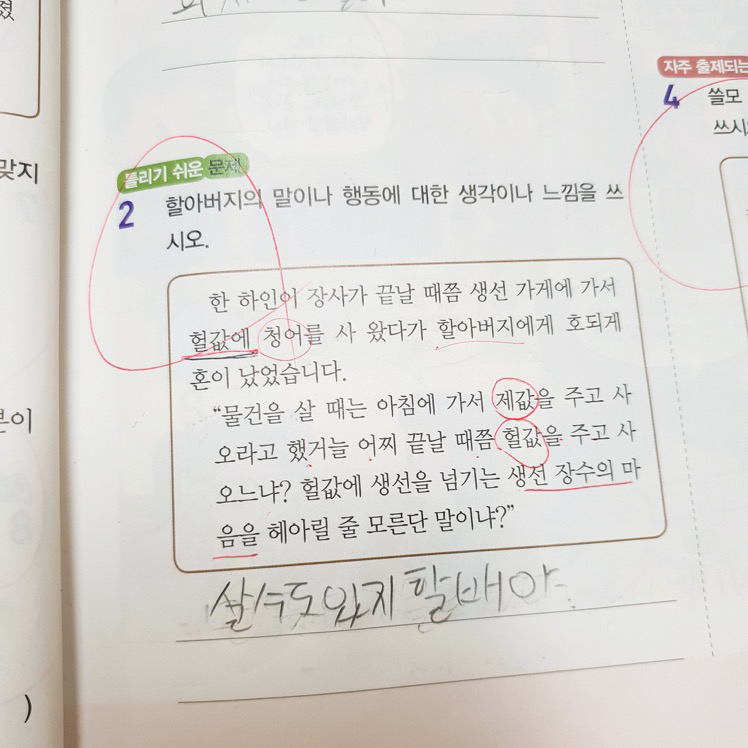 졌
맞지
본이
)
틀리기 쉬운 문제
2 할아버지의 말이나 행동에 대한 생각이나 느낌을 쓰
시오.
한 하인이 장사가 끝날 때쯤 생선 가게에 가서
헐값에 청어를 사 왔다가 할아버지에게 호되게
혼이 났었습니다.
“물건을 살 때는 아침에 가서 제값을 주고 사
오라고 했거늘 어찌 끝날 때쯤 헐값을 주고 사
오느냐? 헐값에 생선을 넘기는 생선 장수의 마
음을 헤아릴 줄 모른단 말이냐?”
살수도있지 할배야.
자주 출제되는
4 쓸모
쓰시오